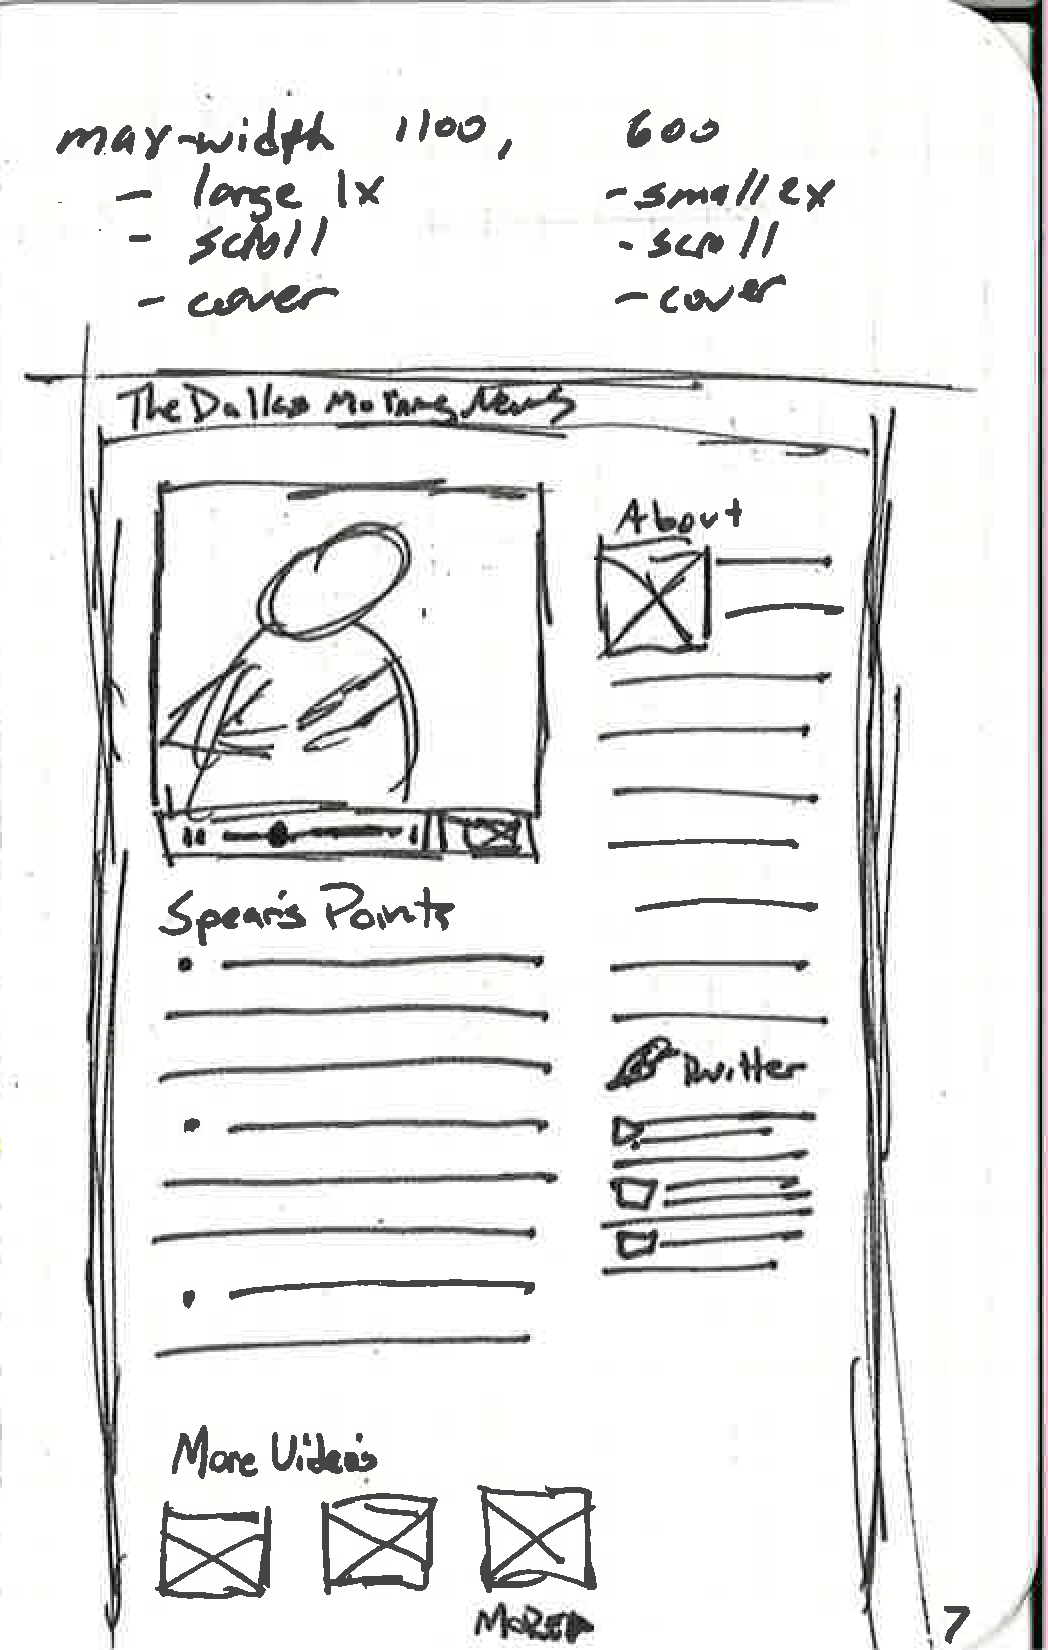 max-width 1100, 600
- large 1x
- scroll
- cover
- small 2x
- scroll
- cover
The Dallas Morning News
About
Spear's Points
Twitter
More Videos
MORE
7